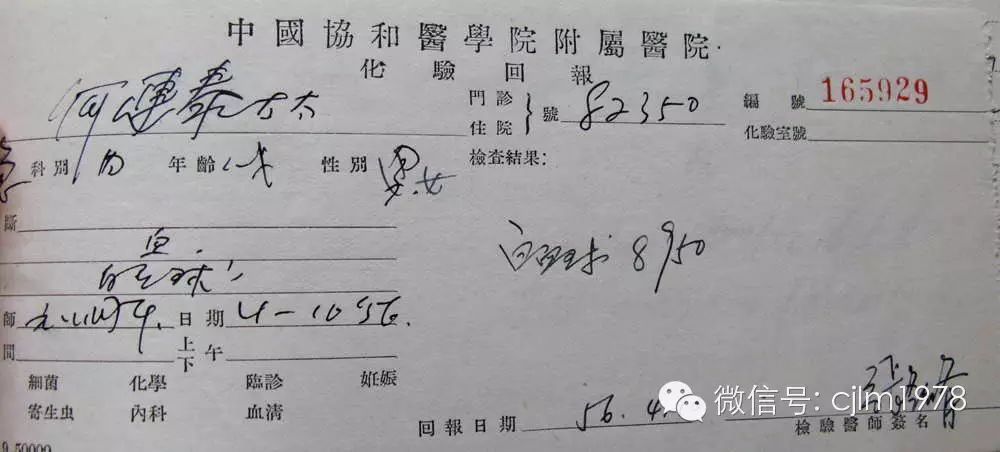 中國協和醫學院附屬醫院
化驗回報
門診 住院 } 號 82350
編號 165929
化驗室號
科別 內 年齡 性別 男.女
檢查結果:
斷
血
白血球
白血球 8950
師 日期 4-10 56.
間 上下午
細菌 化學 臨診 妊娠
寄生虫 內科 血清
回報日期 56. 4.
檢驗醫師簽名
微信号: cjlm1978
9.50000